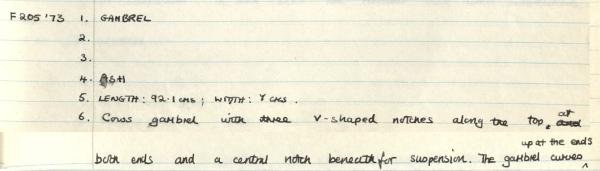 F205 '73 1. GAMBREL
2.
3.
4. ASH
5. LENGTH: 92.1 CMS; WIDTH: 7 CMS.
6. Cows gambrel with three V-shaped notches along the top, and at
up at the ends
both ends and a central notch beneath for suspension. The gambrel curves ^